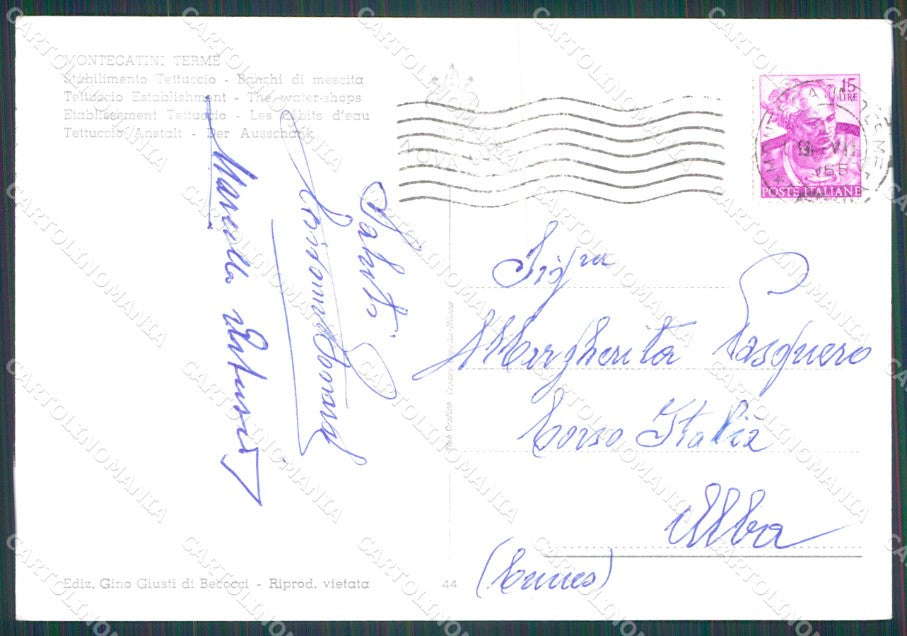 MONTECATINI TERME
Stabilimento Tettuccio - Banchi di mescita
Tettuccio Establishment - The water-shops
Etablissement Tettuccio - Les débits d'eau
Tettuccio Anstalt - Der Ausschank
15
LIRE
POSTE ITALIANE
Saluti
Marcella
Sig.ra
Margherita Pasquero
Corso Italia
Alba
(Cuneo)
Ediz. Gino Giusti di Becocci - Riprod. vietata
44
CARTOLINOMANIA